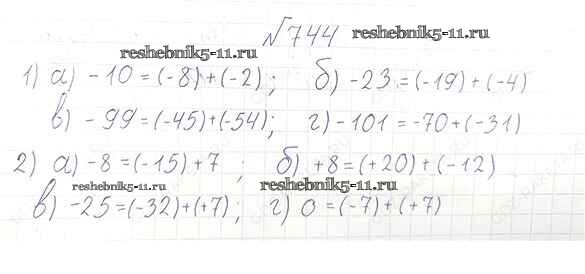 №744
reshebnik5-11.ru
reshebnik5-11.ru
1) а) -10 = (-8) + (-2); б) -23 = (-19) + (-4)
в) - 99 = (-45) + (-54); г) -101 = -70 + (-31)
2) а) -8 = (-15) + 7 ; б) +8 = (+20) + (-12)
reshebnik5-11.ru
reshebnik5-11.ru
в) -25 = (-32) + (+7); г) 0 = (-7) + (+7)